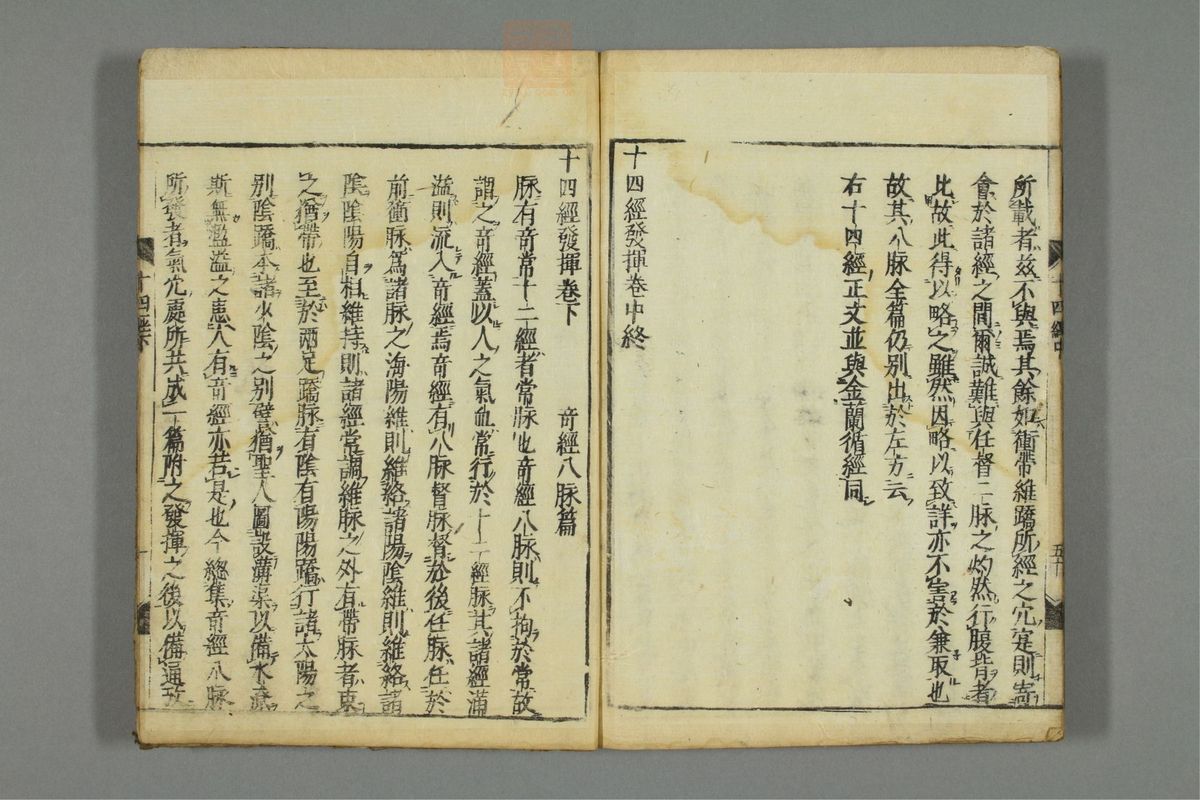 所載者兹不與焉其餘如衝帶維蹻所經之穴寔則寄
會於諸經之間爾誠難與任督二脉之灼然行腹背者
比故此得以略之雖然因略以致詳亦不害於兼取也
故其八脉全篇仍別出於左方云
右十四經正文並與金蘭循經同
十四經發揮卷中終
十四經中
五十
十四經發揮卷下 奇經八脉篇
脉有奇常十二經者常脉也奇經八脉則不拘於常故
謂之奇經蓋以人之氣血常行於十二經脉其諸經滿
溢則流入奇經焉奇經有八脉督脉督於後任脉任於
前衝脉爲諸脉之海陽維則維絡諸陽陰維則維絡諸
陰陰陽自相維持則諸經常調維脉之外有帶脉者束
之猶帶也至於兩足蹻脉有陰有陽陽蹻行諸太陽之
別陰蹻本諸少陰之別譬猶聖人圖設溝渠以備水
斯無濫溢之患人有奇經亦若是也今總集奇經八脉
所發者氣穴處所共成一篇附之發揮之後以備通攷
十四經下
一